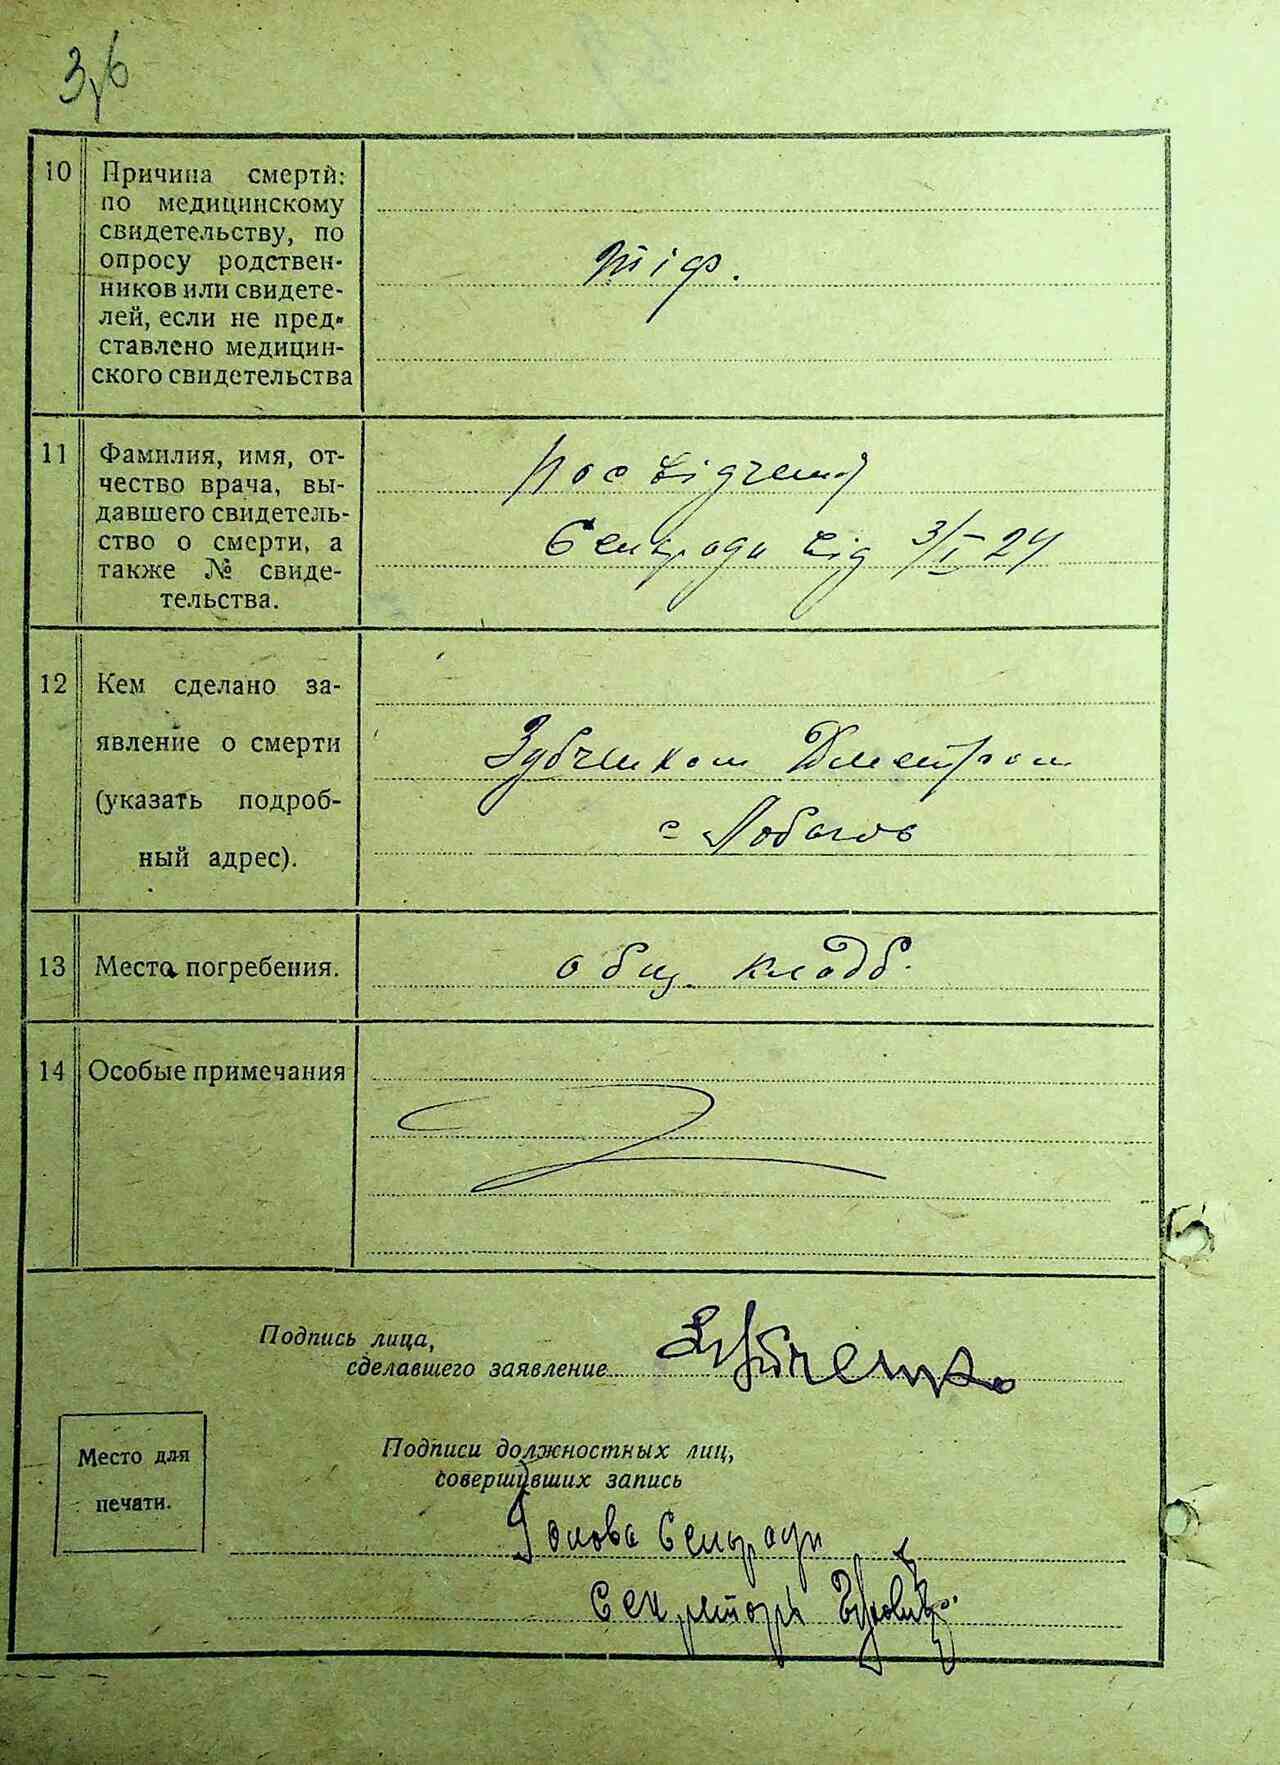 3/б
10 Причина смерти:
по медицинскому
свидетельству, по
опросу родствен-
ников или свидете-
лей, если не пред-
ставлено медицин-
ского свидетельства
тіф.
11 Фамилия, имя, от-
чество врача, вы-
давшего свидетель-
ство о смерти, а
также № свиде-
тельства.
Посвідчення
Сельради від 3/I 24
12 Кем сделано за-
явление о смерти
(указать подроб-
ный адрес).
Зубченком Дметром
с
13 Места погребения.
общ. кладб.
14 Особые примечания
Подпись лица,
сделавшего заявление
Зубченко
Место для
печати.
Подписи должностных лиц,
совершивших запись
Голова Сельради
Секретарь